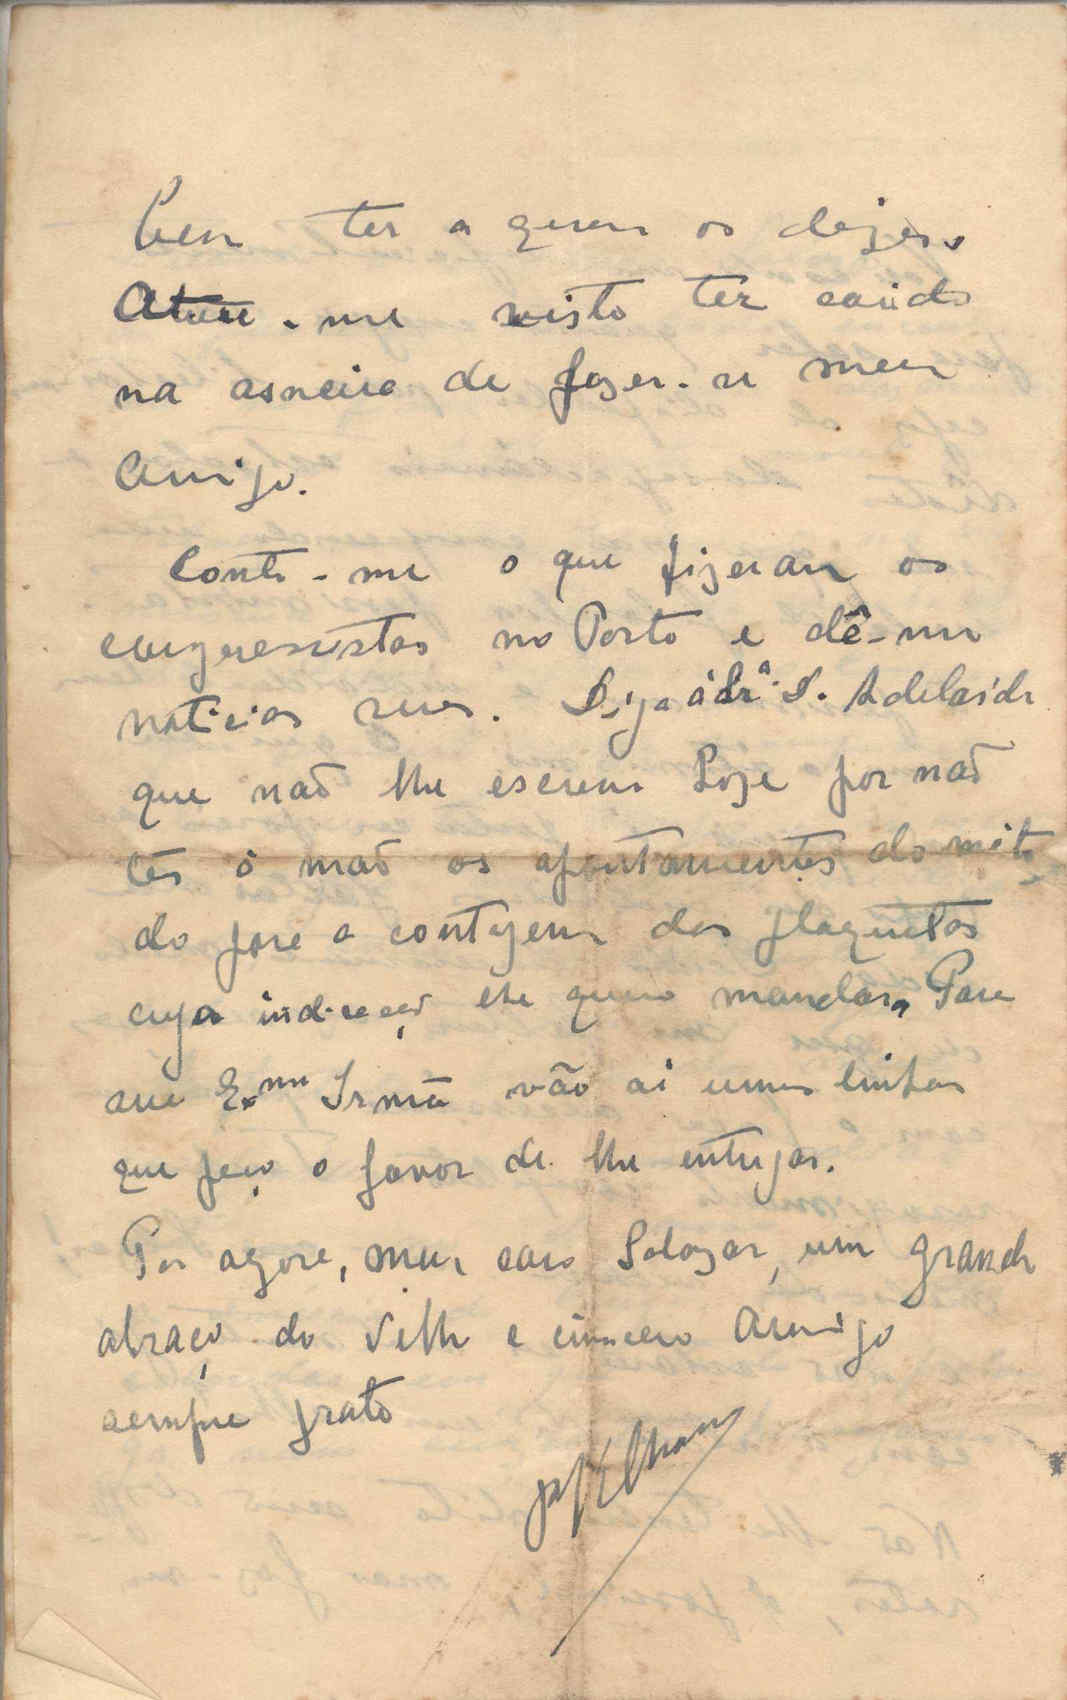 bem ter a quem os dizer.
Ature-me visto ter caido
na asneira de fazer-se meu
Amigo.
Conte-me o que fizeram os
congressistas no Porto e dê-me
noticias suas. Diga á Sr.ª D. Adelaide
que não lhe escrevi hoje por não
ter á mão os apontamentos do meto-
do para a contagem das plaquetas
cuja indicação lhe quero mandar. Para
sua Exma Irmã vão ai umas linhas
que peço o favor de lhe entregar.
Por agora, meu caro Salazar, um grande
abraço do velho e sincero Amigo
sempre grato